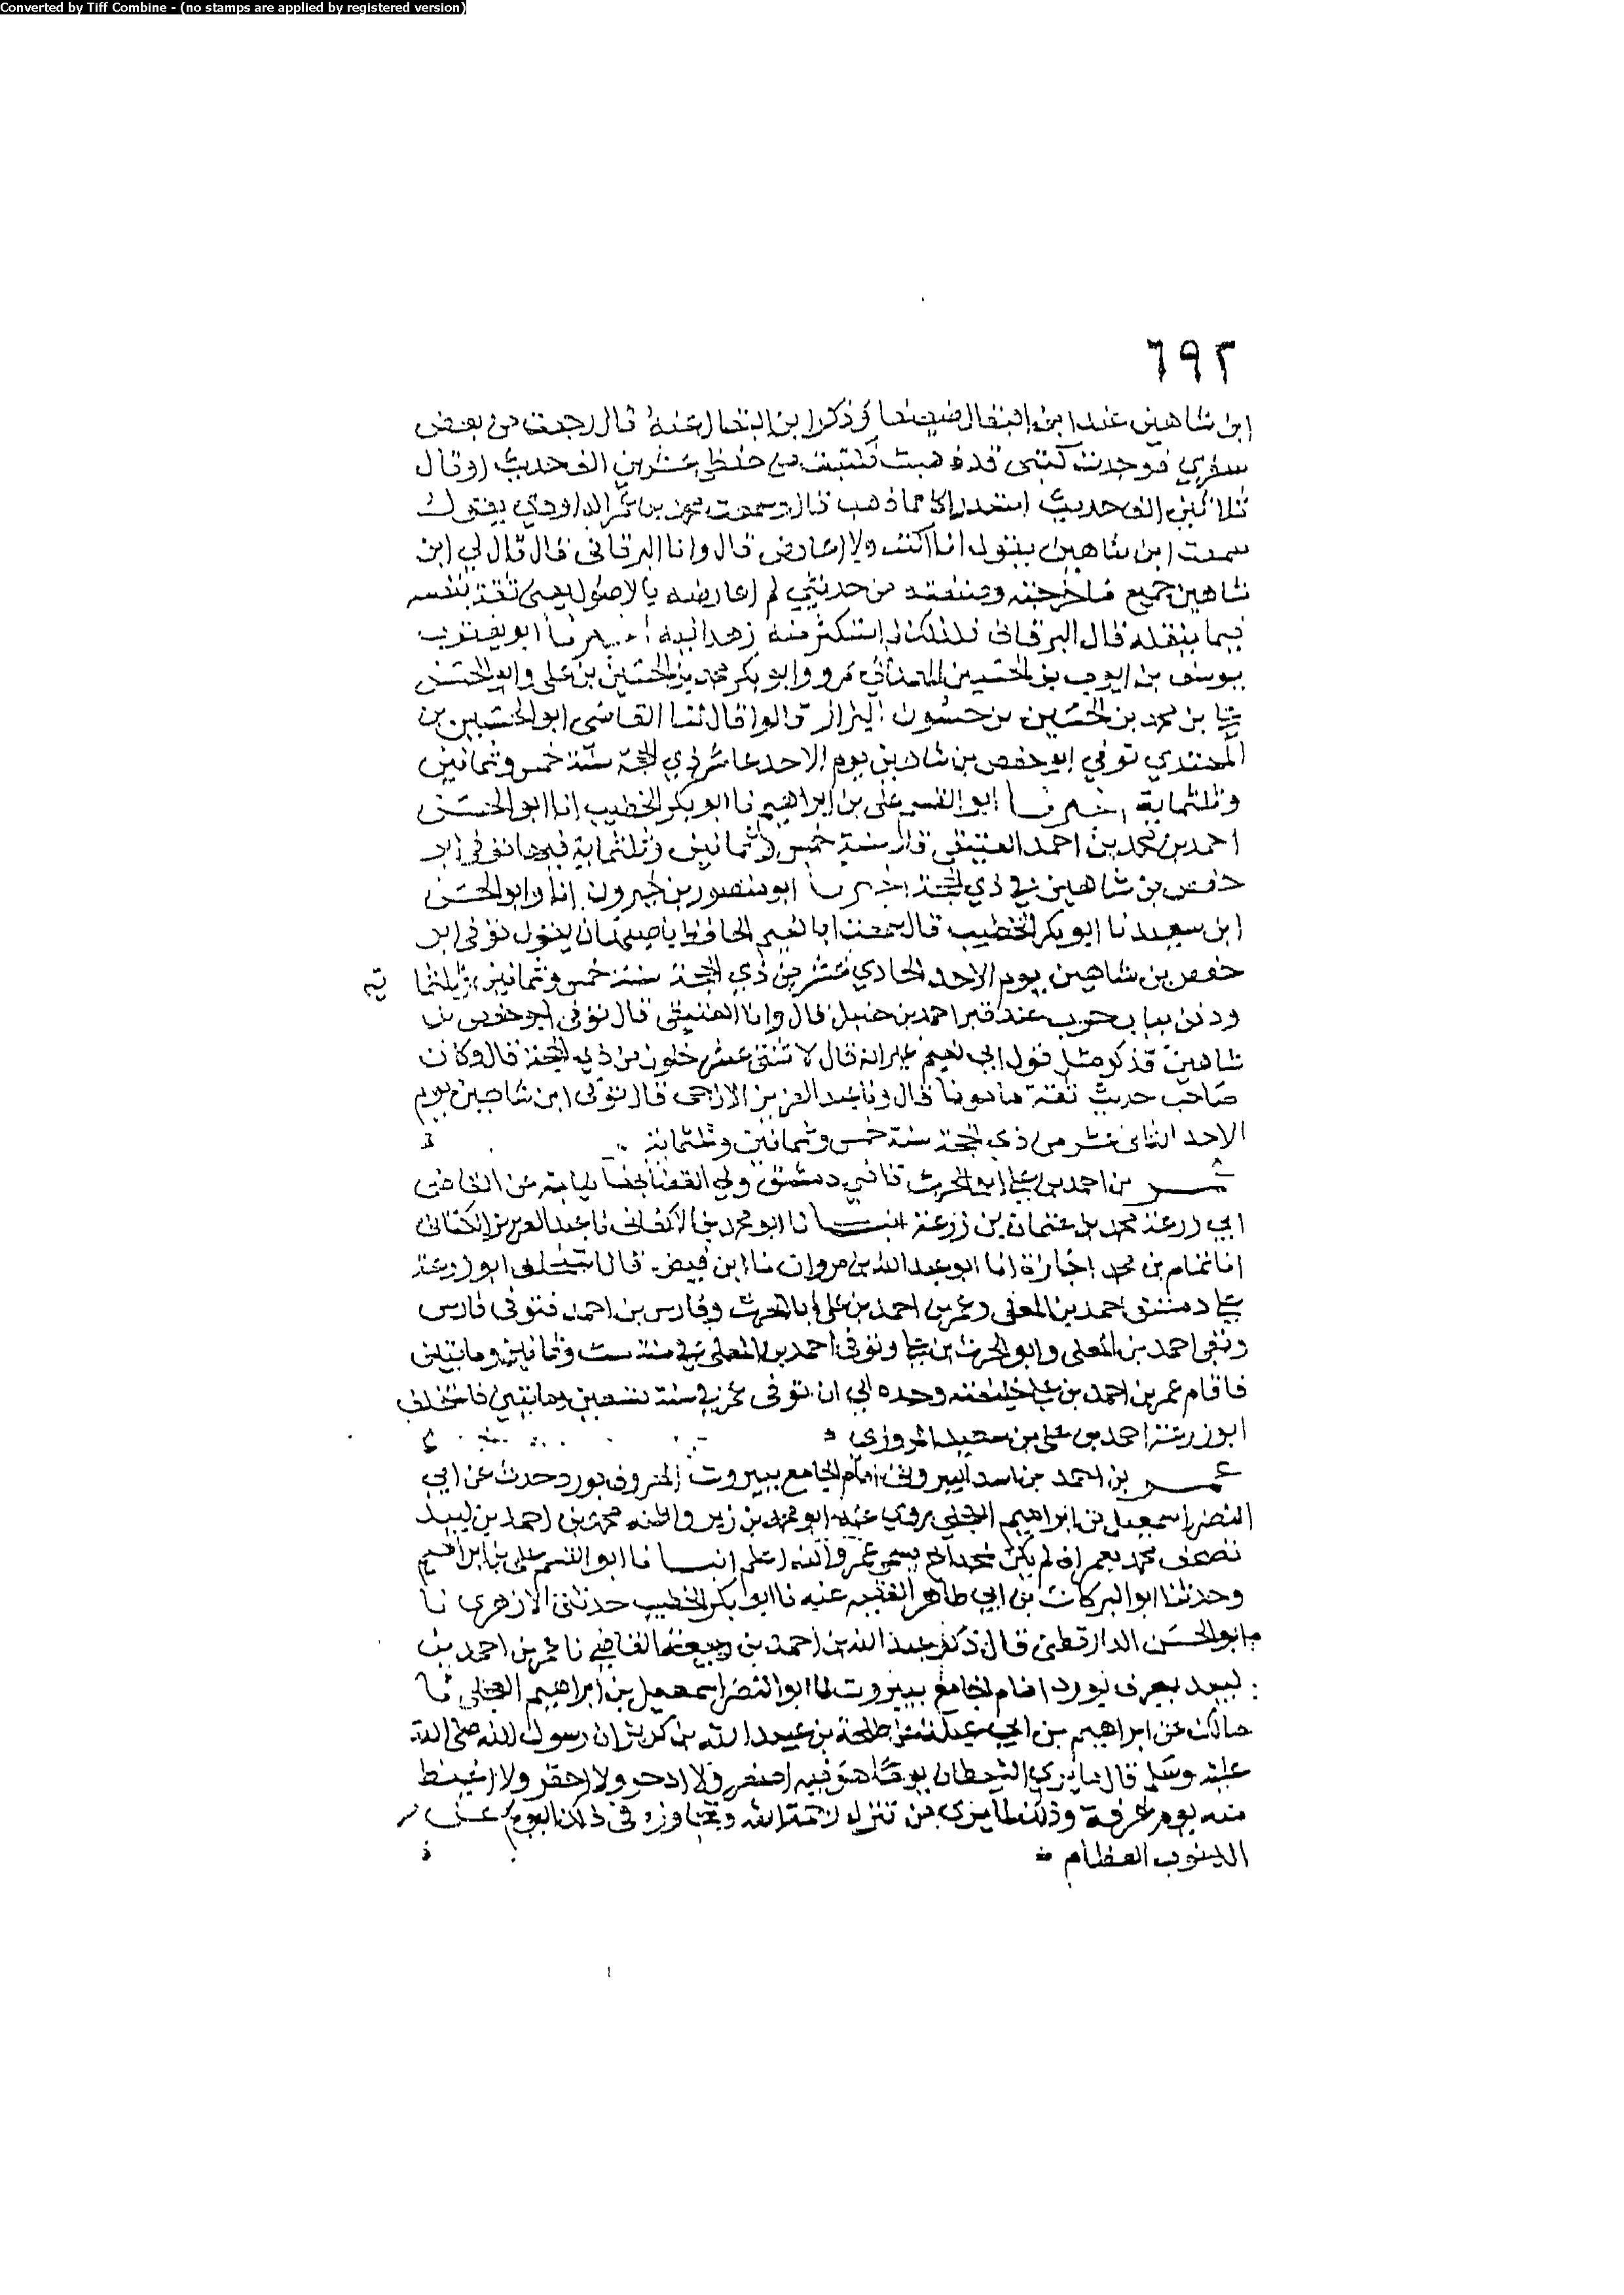 Converted by Tiff Combine - (no stamps are applied by registered version)
٦٩٢
ابن شاهين عند ابن البقال ضعيفا وذكر ابن البقال عنه قال رجعت من بعض
سفري فوجدت كتبي قد ذهبت فكتبت من حفظي عشرين الف حديث او قال
ثلاثين الف حديث استدراكا مما ذهب قال وسمعت محمد بن عمر الداودي يقول
سمعت ابن شاهين يقول انا اكتب ولا اعارض قال وانا البرقاني قال قال لي ابن
شاهين جميع ما خرجته وصنفته من حديثي لم اعارضه بالاصول يعني ثقة بنفسه
فيما ينقله قال البرقاني فلذلك لم استكثر منه زهدا فيه اخبرنا ابو يعقوب
يوسف بن ايوب بن الحسين الهمذاني بمرو وابو بكر محمد بن الحسين بن علي وابو الحسن
علي بن محمد بن الحسين بن حسون البزاز قالوا قال لنا القاضي ابو الحسين بن
المهتدي توفي ابو حفص بن شاهين يوم الاحد عاشر ذي الحجة سنة خمس وثمانين
وثلثماية اخبرنا ابو القسم علي بن ابراهيم نا ابو بكر الخطيب انا ابو الحسن
احمد بن محمد بن احمد العتيقي قال سنة خمس وثمانين وثلثماية فيها توفي ابو
حفص بن شاهين في ذي الحجة اخبرنا ابو منصور بن خيرون انا وابو الحسن
ابن سعيد نا ابو بكر الخطيب قال سمعت ابا نعيم الحافظ باصبهان يقول توفي ابو
حفص بن شاهين يوم الاحد الحادي عشر من ذي الحجة سنة خمس وثمانين وثلثما ية
ودفن بباب حرب عند قبر احمد بن حنبل قال وانا العتيقي قال توفي ابو حفص بن
شاهين فذكر مثل قول ابي نعيم غير انه قال لاثنتي عشر خلون من ذي الحجة قال وكان
صاحب حديث ثقة مامونا قال ونا عبد العزيز الازجي قال توفي ابن شاهين يوم
الاحد الثاني عشر من ذي الحجة سنة خمس وثمانين وثلثماية
عمر بن احمد بن علي ابو الحرث قاضي دمشق ولي القضا بها نيابة عن القاضي
ابي زرعة محمد بن عثمان بن زرعة انبانا ابو محمد بن الاكفاني نا عبد العزيز الكتاني
انا تمام بن محمد اجازة انا ابو عبد الله بن مروان نا ابن فيض قال استخلف ابو زرعة
علي دمشق احمد بن المعلي وعمر بن احمد بن علي ابا الحرث وفارس بن احمد فتوفى فارس
وبقي احمد بن المعلى وابو الحرث بن علي وتوفي احمد بن المعلي في سنة ست وثمانين وماتين
فاقام عمر بن احمد بن علي خليفته وحده الى ان توفى عمر في سنة تسعين وماتين فاستخلف
ابو زرعة احمد بن علي بن سعيد المروزي
عمر بن احمد بن اسد البيروتي امام الجامع ببيروت المعروف بورد حدث عن ابي
النضر اسمعيل بن ابراهيم العجلي روي عنه ابو محمد بن زبر واظنه محمد بن احمد بن لبيد
تصحف محمد بعمر ان لم يكن له اخ يسمى عمر والله اعلم انبانا ابو القسم علي بن ابراهيم
وحدثنا ابو البركات بن ابي طاهر الفقيه عنه نا ابو بكر الخطيب حدثني الازهري نا
ابو الحسن الدارقطني قال ذكر عبد الله بن احمد بن ربيعة القاضي نا عمر بن احمد بن
لبيد يعرف بورد امام الجامع ببيروت نا ابو النضر اسمعيل بن ابراهيم العجلي نا
مالك عن ابراهيم بن ابي عبلة عن طلحة بن عبيد الله بن كريز ان رسول الله صلى الله
عليه وسلم قال ما يري الشيطان يوما هو فيه اصغر ولا ادحر ولا احقر ولا اغيظ
منه يوم عرفة وذلك لما يرى من تنزل رحمة الله وتجاوزه في ذلك اليوم عن
الذنوب العظام